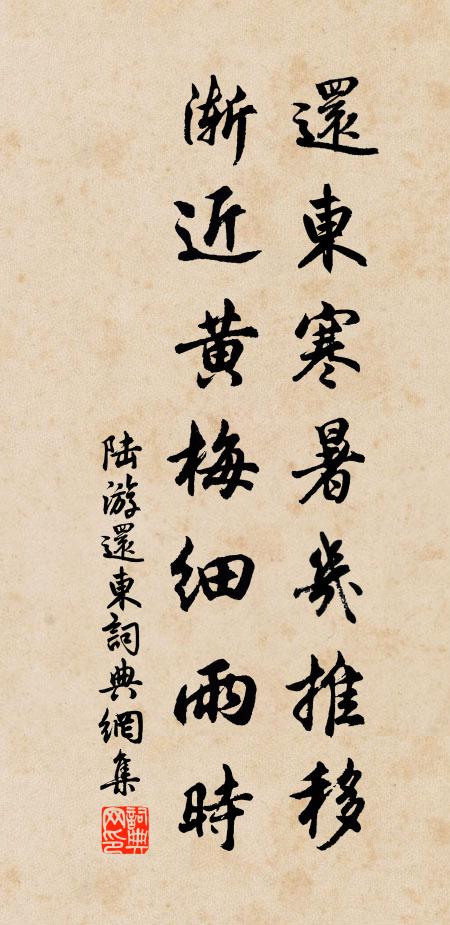 還東寒暑幾推移
漸近黄梅細雨時
陸游還東詞典網集
詞典网印